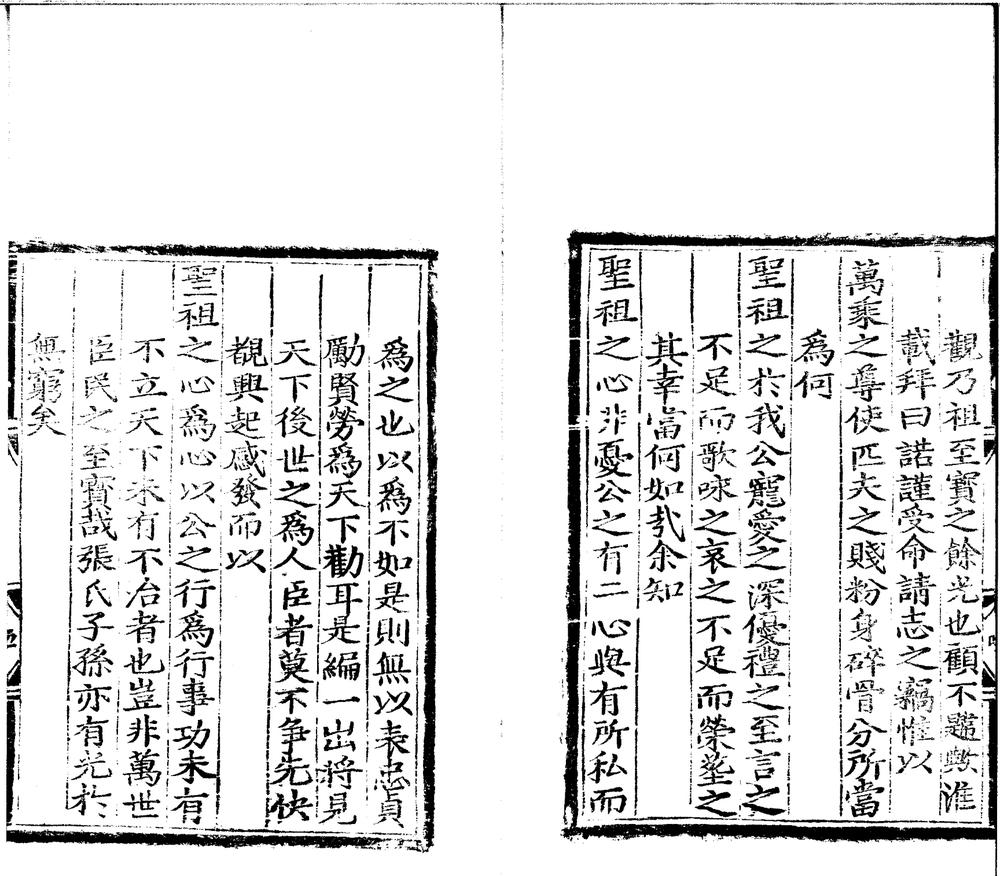 觀乃祖至寶之餘光也顧不韙歟淮
載拜曰諾謹受命請志之竊惟以
萬乘之尊使匹夫之賤粉身碎骨分所當
爲何
聖祖之於我公寵愛之深優禮之至言之
不足而歌咏之哀之不足而榮塟之
其幸當何如㢤余知
聖祖之心非憂公之有二心與有所私而
爲之也以爲不如是則無以表忠貞
勵賢勞爲天下勸耳是編一出將見
天下後世之爲人臣者莫不争先快
覩興起感發而以
聖祖之心爲心以公之行爲行事功未有
不立天下未有不治者也豈非萬世
臣民之至寶哉張氏子孫亦有光於
無窮矣